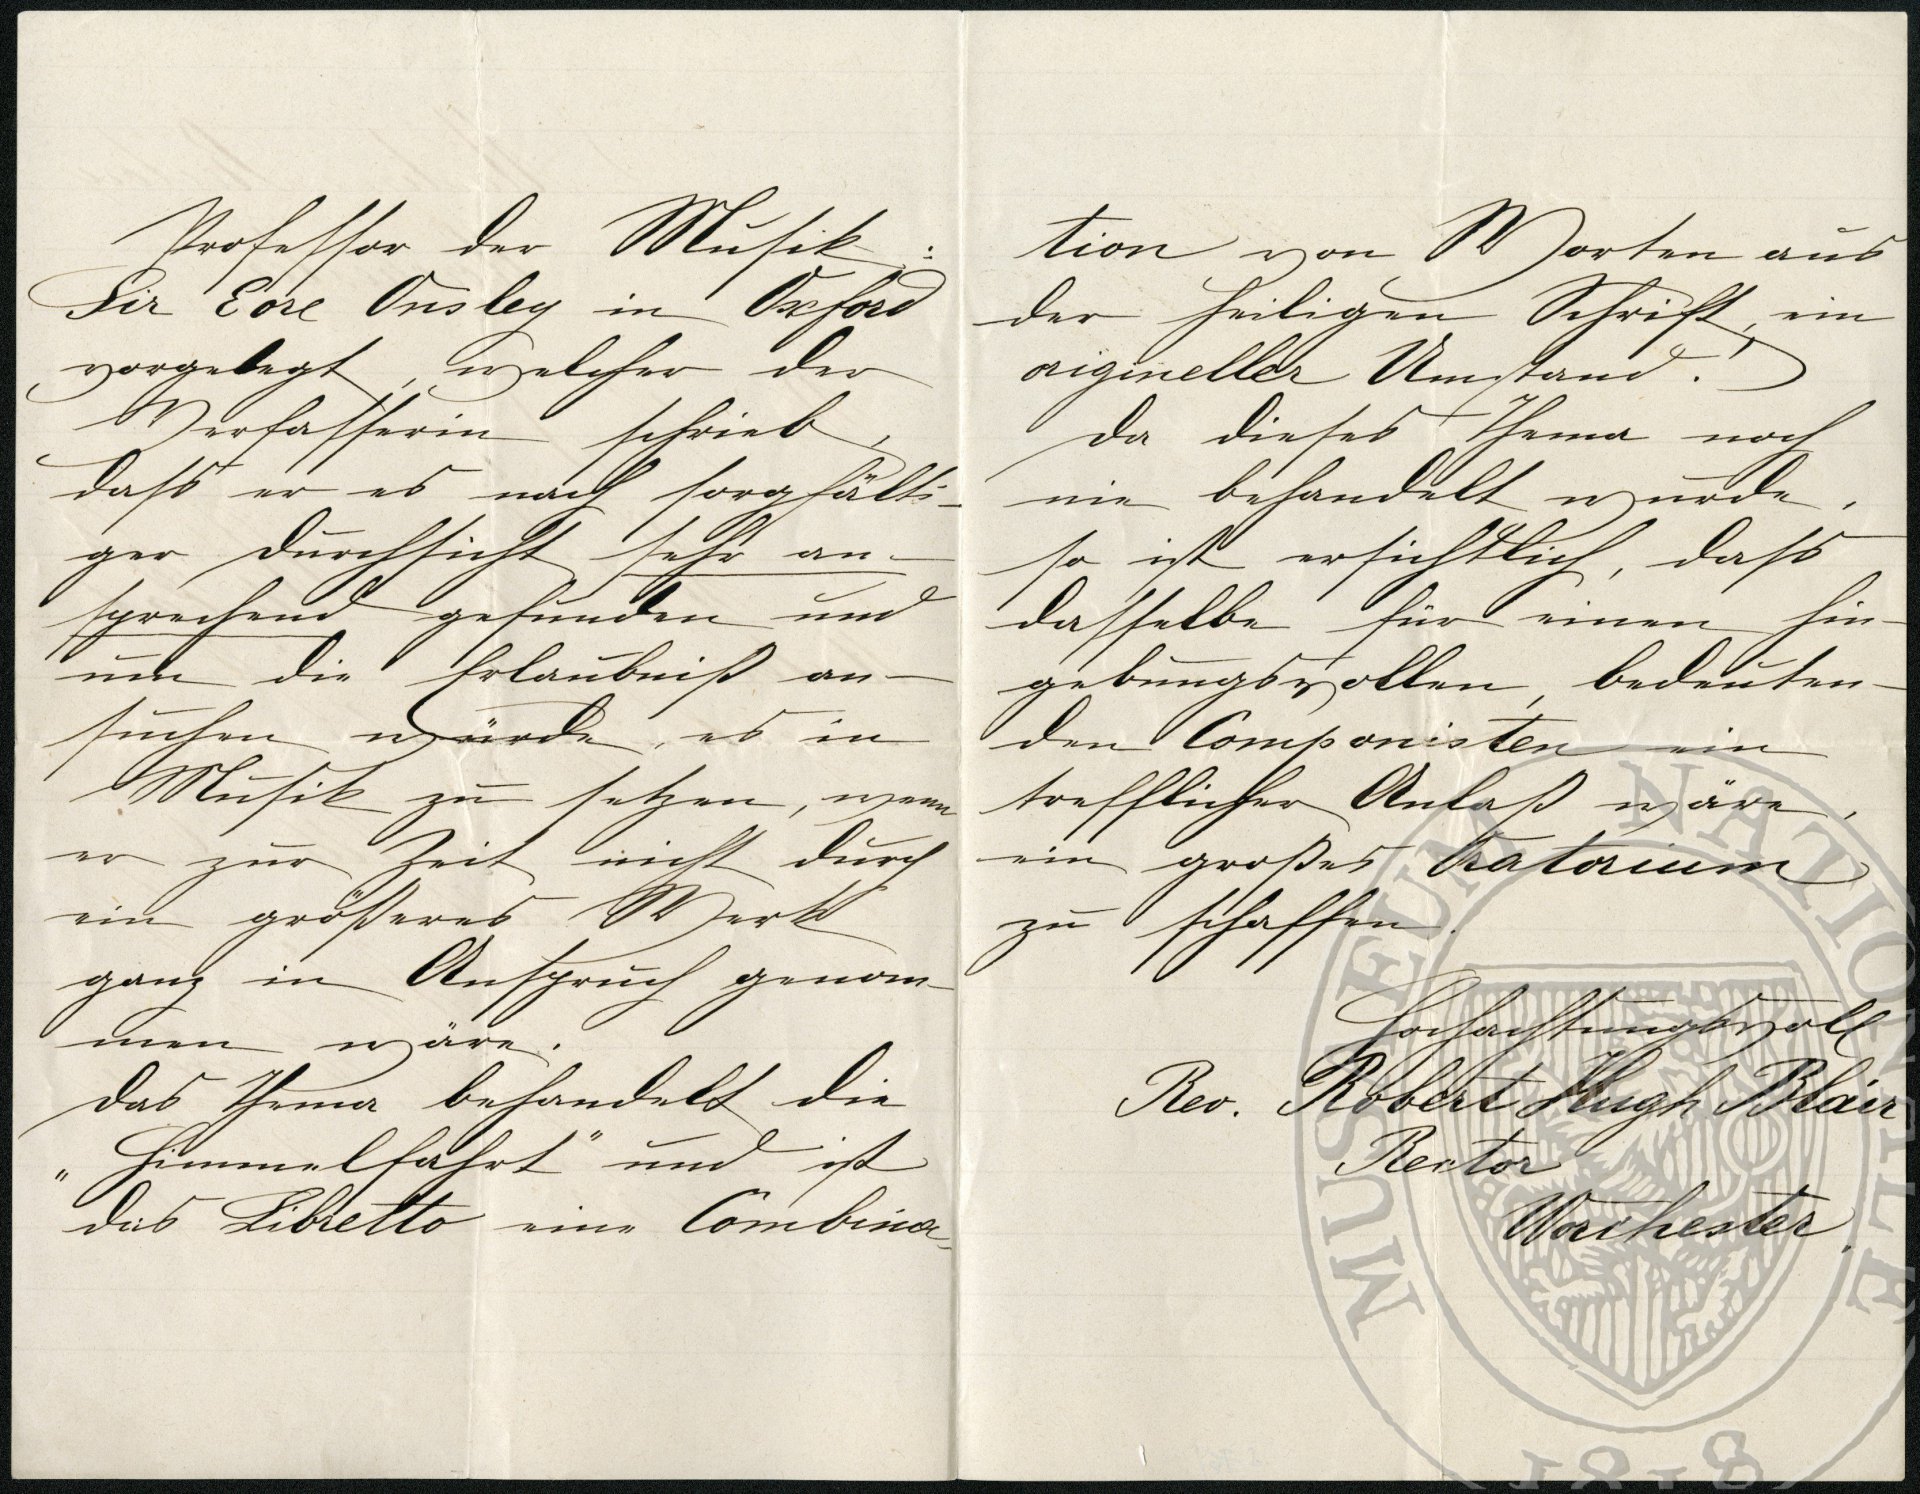 Professor der Musik:
Sir Eore Onsley in Oxford
vorgelegt, welcher der
Verfasserin schrieb,
dass er es nach sorgfälti-
ger Durchsicht sehr an-
sprechend gefunden und
um die Erlaubniß an-
suchen würde, es in
Musik zu setzen, wenn
er zur Zeit nicht durch
ein größeres Werk
ganz in Anspruch genom-
men wäre.
Das Thema behandelt die
„Himmelfahrt" und ist
das Libretto eine Combina-
tion von Worten aus
der heiligen Schrift, ein
origineller Umstand.
Da dieses Thema noch
nie behandelt wurde,
so ist ersichtlich, dass
dasselbe für einen hin-
gebungsvollen, bedeuten-
den Componisten ein
trefflicher Anlaß wäre,
ein großes Oratorium
zu schaffen.
Hochachtungsvoll
Rev. Robert Hugh Blair
Rector
Worchester.
MUSEUM NATIONALE
1818